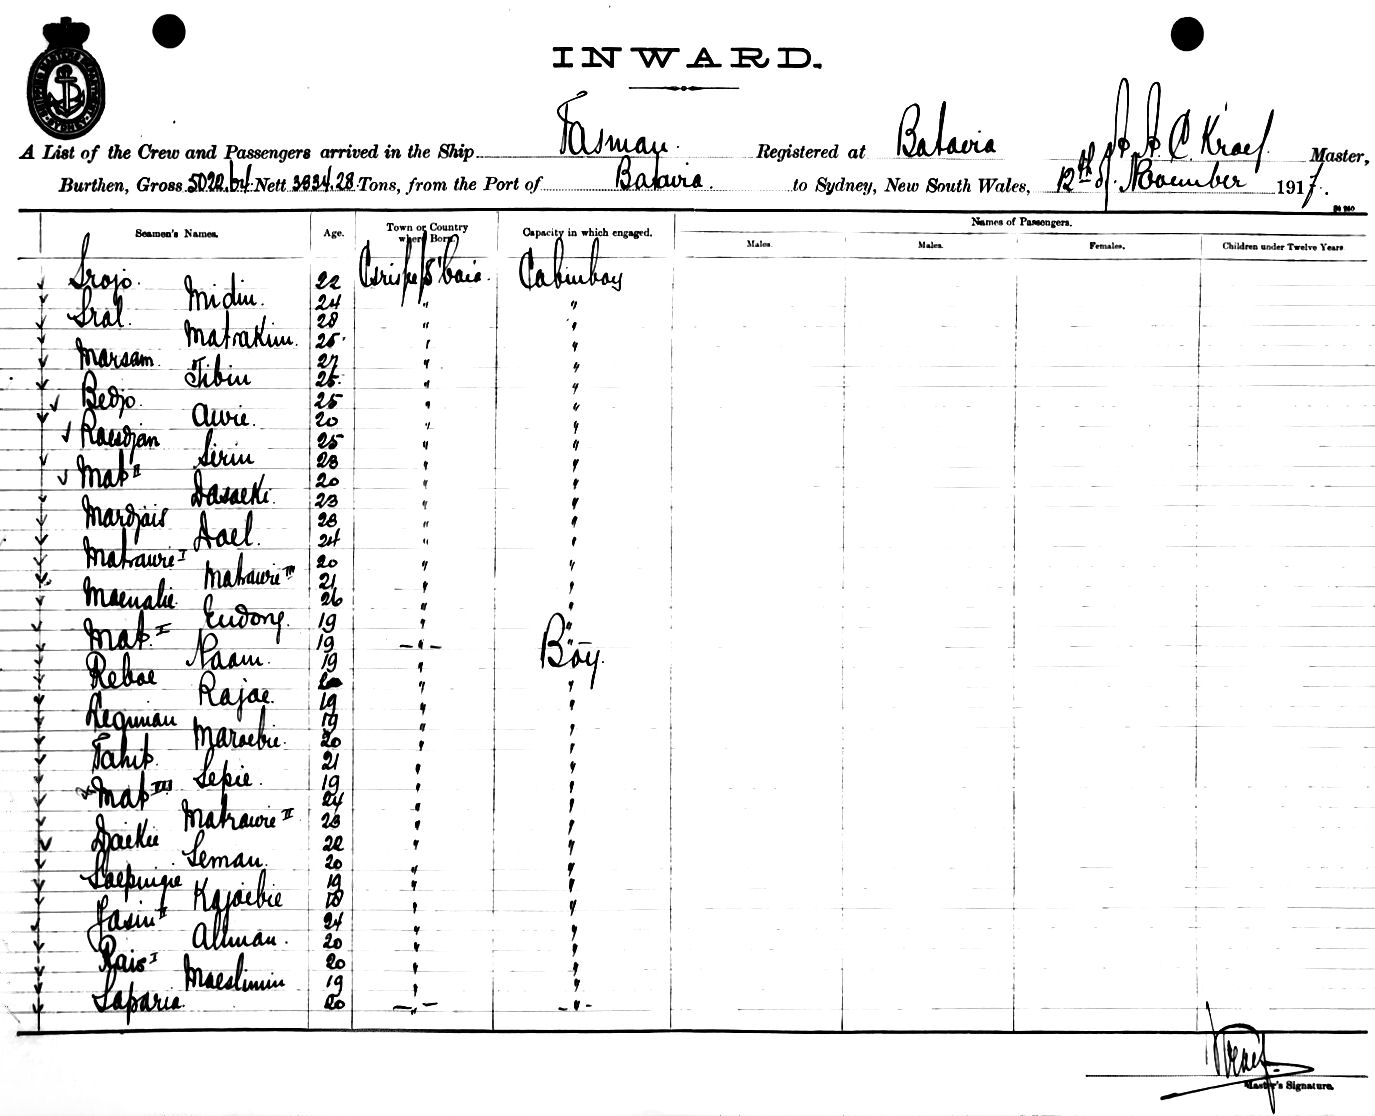 INWARD.
A List of the Crew and Passengers arrived in the Ship Tasman. Registered at Batavia C. Kraef Master,
Burthen, Gross 5022,64 Nett 3034.28 Tons, from the Port of Batavia. to Sydney, New South Wales, 12th of November 1917.
Names of Passengers.
Seamen's Names. Age. Town or Country where Born. Capacity in which engaged. Males. Males. Females. Children under Twelve Years
Srojo. 22 Cabinboy
Midin. 24 " "
Sral. 28 " "
Matrakim. 25 " "
Marsam. 27 " "
Tibin 25 " "
Bedjo. 25 " "
Awie. 20 " "
Raesdjan 25 " "
Sirin 28 " "
Mat II 20 " "
Dasaeki. 23 " "
Mardjais 28 " "
Dael. 24 " "
Matrawie I 20 " "
Matrawie III 21 " "
Maenalie. 26 " "
Endong. 19 " "
Mat. I 19 " "
Naam. 19 " Boy.
Reboe " "
Rajae. 19 " "
Legiman 19 " "
Maroebie. 20 " "
Tahip. 21 " "
Sepie. 19 " "
Mat III 24 " "
Matrawie II 23 " "
Daekie 22 " "
Seman. 20 " "
Saepingie 19 " "
Kajoebie 18 " "
Jasin II 24 " "
Aliman. 20 " "
Rais I 20 " "
Maeslimin 19 " "
Saparia. 20 " "
Kraef.
Master's Signature.